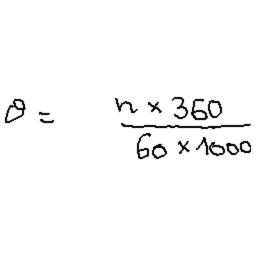 θ = n × 360 / 60 × 1000